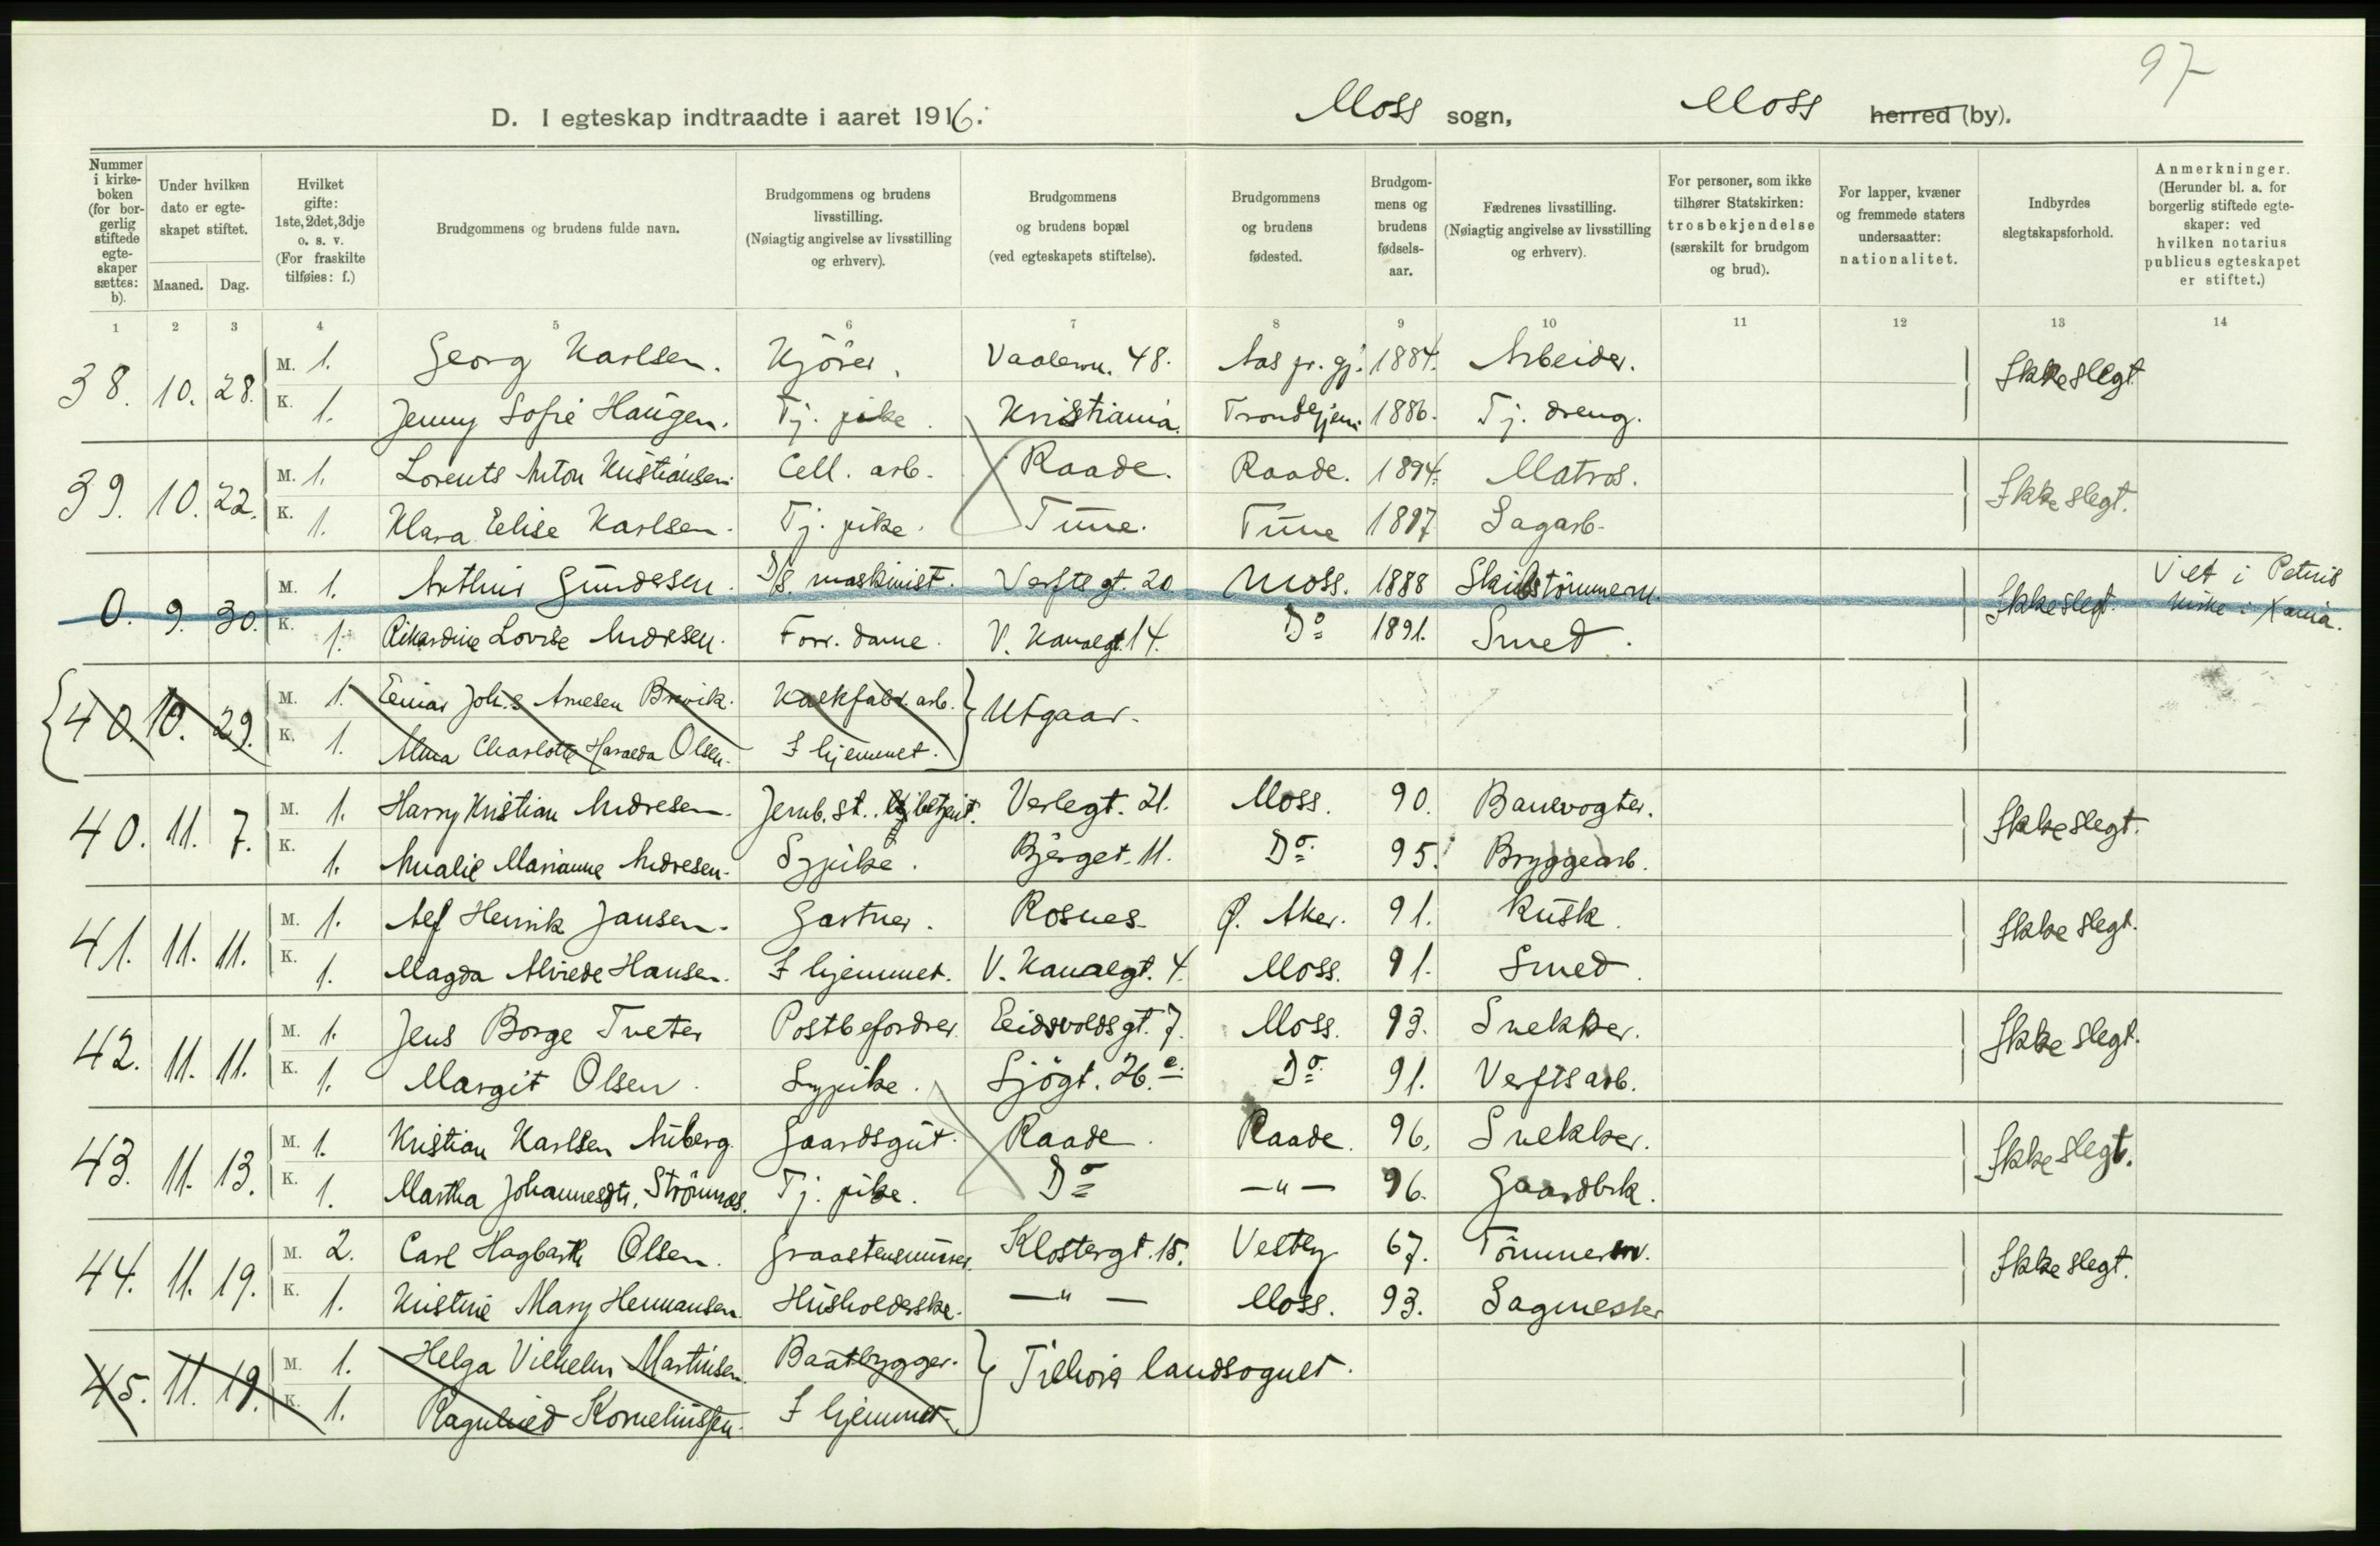 97
D. I egteskap indtraadte i aaret 1916. Moss sogn, Moss herred (by).
Nummer i kirke-boken (for bor-gerlig stiftede egte-skaper sættes: b).
Under hvilken dato er egte-skapet stiftet.
Maaned. Dag.
Hvilket gifte: 1ste, 2det, 3dje o. s. v. (For fraskilte tilføies: f.)
Brudgommens og brudens fulde navn.
Brudgommens og brudens livsstilling. (Nøiagtig angivelse av livsstilling og erhverv).
Brudgommens og brudens bopæl (ved egteskapets stiftelse).
Brudgommens og brudens fødested.
Brudgom-mens og brudens fødsels-aar.
Fædrenes livsstilling. (Nøiagtig angivelse av livsstilling og erhverv).
For personer, som ikke tilhører Statskirken: trosbekjendelse (særskilt for brudgom og brud).
For lapper, kvæner og fremmede staters undersaatter: nationalitet.
Indbyrdes slegtskapsforhold.
Anmerkninger. (Herunder bl. a. for borgerlig stiftede egte-skaper: ved hvilken notarius publicus egteskapet er stiftet.)
1 2 3 4 5 6 7 8 9 10 11 12 13 14
38. 10. 28. M. 1. Georg Karlsen. Kjörer. Vaalerv. 48. Aas pr. gj. 1884. Arbeider. Ikke slegt.
K. 1. Jenny Sofie Haugen. Tj. pike. Kristiania. Trondhjem. 1886. Tj. dreng.
39. 10. 22. M. 1. Lorents Anton Kristiansen. Cell. arb. Raade. Raade. 1894. Matros. Ikke slegt.
K. 1. Klara Elise Karlsen. Tj. pike. Tune. Tune 1897 Sagarb.
0. 9. 30. M. 1. Arthur Gundesen. D/S. maskinist. Verftsgt. 20 Moss. 1888 Skibstömmerm. Ikke slegt. Viet i Petrus kirke i Xania.
K. 1. Rikardine Lovise Andresen. Forr. dame. V. Kanalgt. 14. Do 1891. Smed.
40. 10. 29. M. 1. Einar Johs Arnesen Brevik. Kalkfabr. arb. Utgaar.
K. 1. Alma Charlotte Haralda Olsen. I hjemmet.
40. 11. 7. M. 1. Harry Kristian Andresen. Jernb. st. betjent. Verlegt. 21. Moss. 90. Banevogter. Ikke slegt.
K. 1. Amalie Marianne Andresen. Sypike. Bjerget. 11. Do. 95. Bryggearb.
41. 11. 11. M. 1. Alf Henrik Jansen. Gartner. Rosnes. Ø. Aker. 91. Kusk. Ikke slegt.
K. 1. Magda Alvilde Hansen. I hjemmet. V. Kanalgt. 4. Moss. 91. Smed.
42. 11. 11. M. 1. Jens Borge Tveter Postbefordrer Eidsvoldsgt. 7. Moss. 93. Snekker. Ikke slegt.
K. 1. Margit Olsen. Sypike. Sjögt. 26.c. Do. 91. Verftsarb.
43. 11. 13. M. 1. Kristian Karlsen Auberg. Gaardsgut. Raade. Raade. 96. Snekker. Ikke slegt.
K. 1. Martha Johannesdtr. Strömnæs. Tj. pike. Do — " — 96. Gaardbrk.
44. 11. 19. M. 2. Carl Hagbarth Olsen. Graastensmurer. Klostergt. 15. Vestby 67. Tömmerm. Ikke slegt.
K. 1. Kristine Mary Hermansen. Husholderske. — " — Moss. 93. Sagmester
45. 11. 19. M. 1. Helga Vilhelm Martinsen. Baatbygger. Tilhörer landsognet.
K. 1. Ragnhild Korneliussen. I hjemmet.